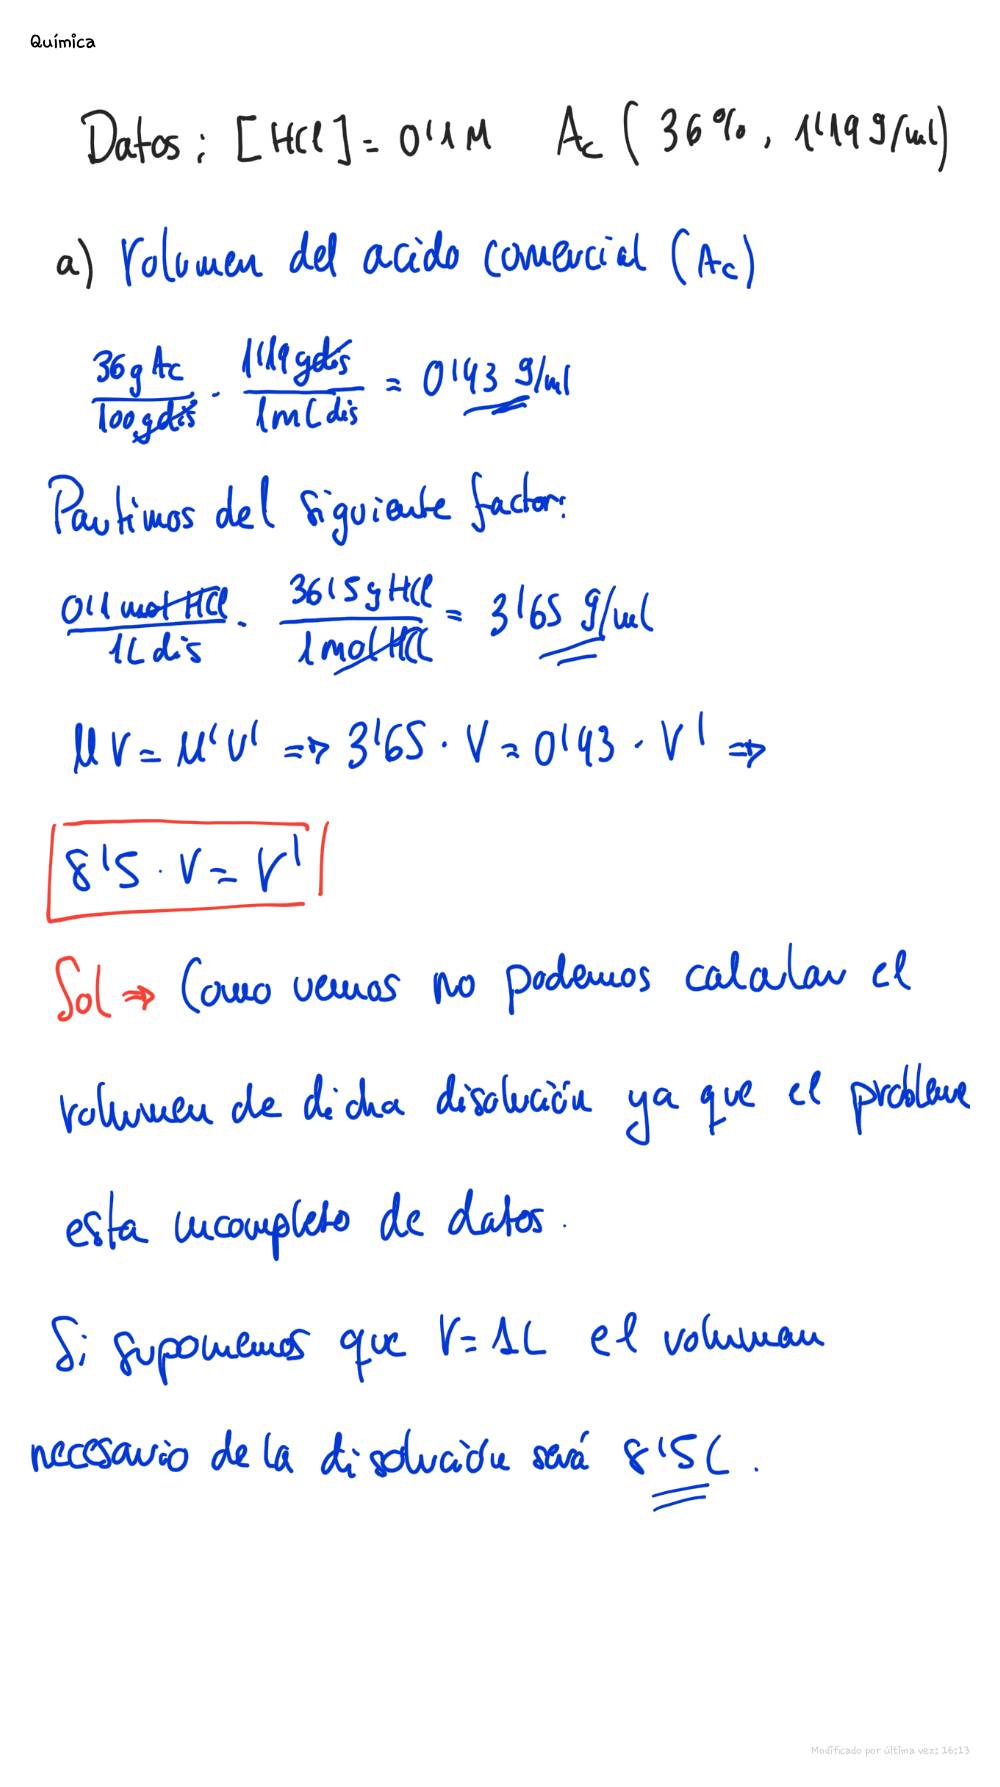 Química
Datos: [HCl] = 0'1M Ac (36%, 1'19 g/ml)
a) Volumen del acido comercial (Ac)
36g Ac / 100 g dis · 1'19 g dis / 1mL dis = 0'43 g/ml
Partimos del siguiente factor:
0'1 mol HCl / 1L dis · 36'5 g HCl / 1 mol HCl = 3'65 g/ml
M V = M' V' => 3'65 · V = 0'43 · V' =>
8'5 · V = V'
Sol => Como vemos no podemos calcular el
volumen de dicha disolución ya que el problema
esta incompleto de datos.
Si suponemos que V = 1L el volumen
necesario de la disolución será 8'5L.
Modificado por última vez: 16:13